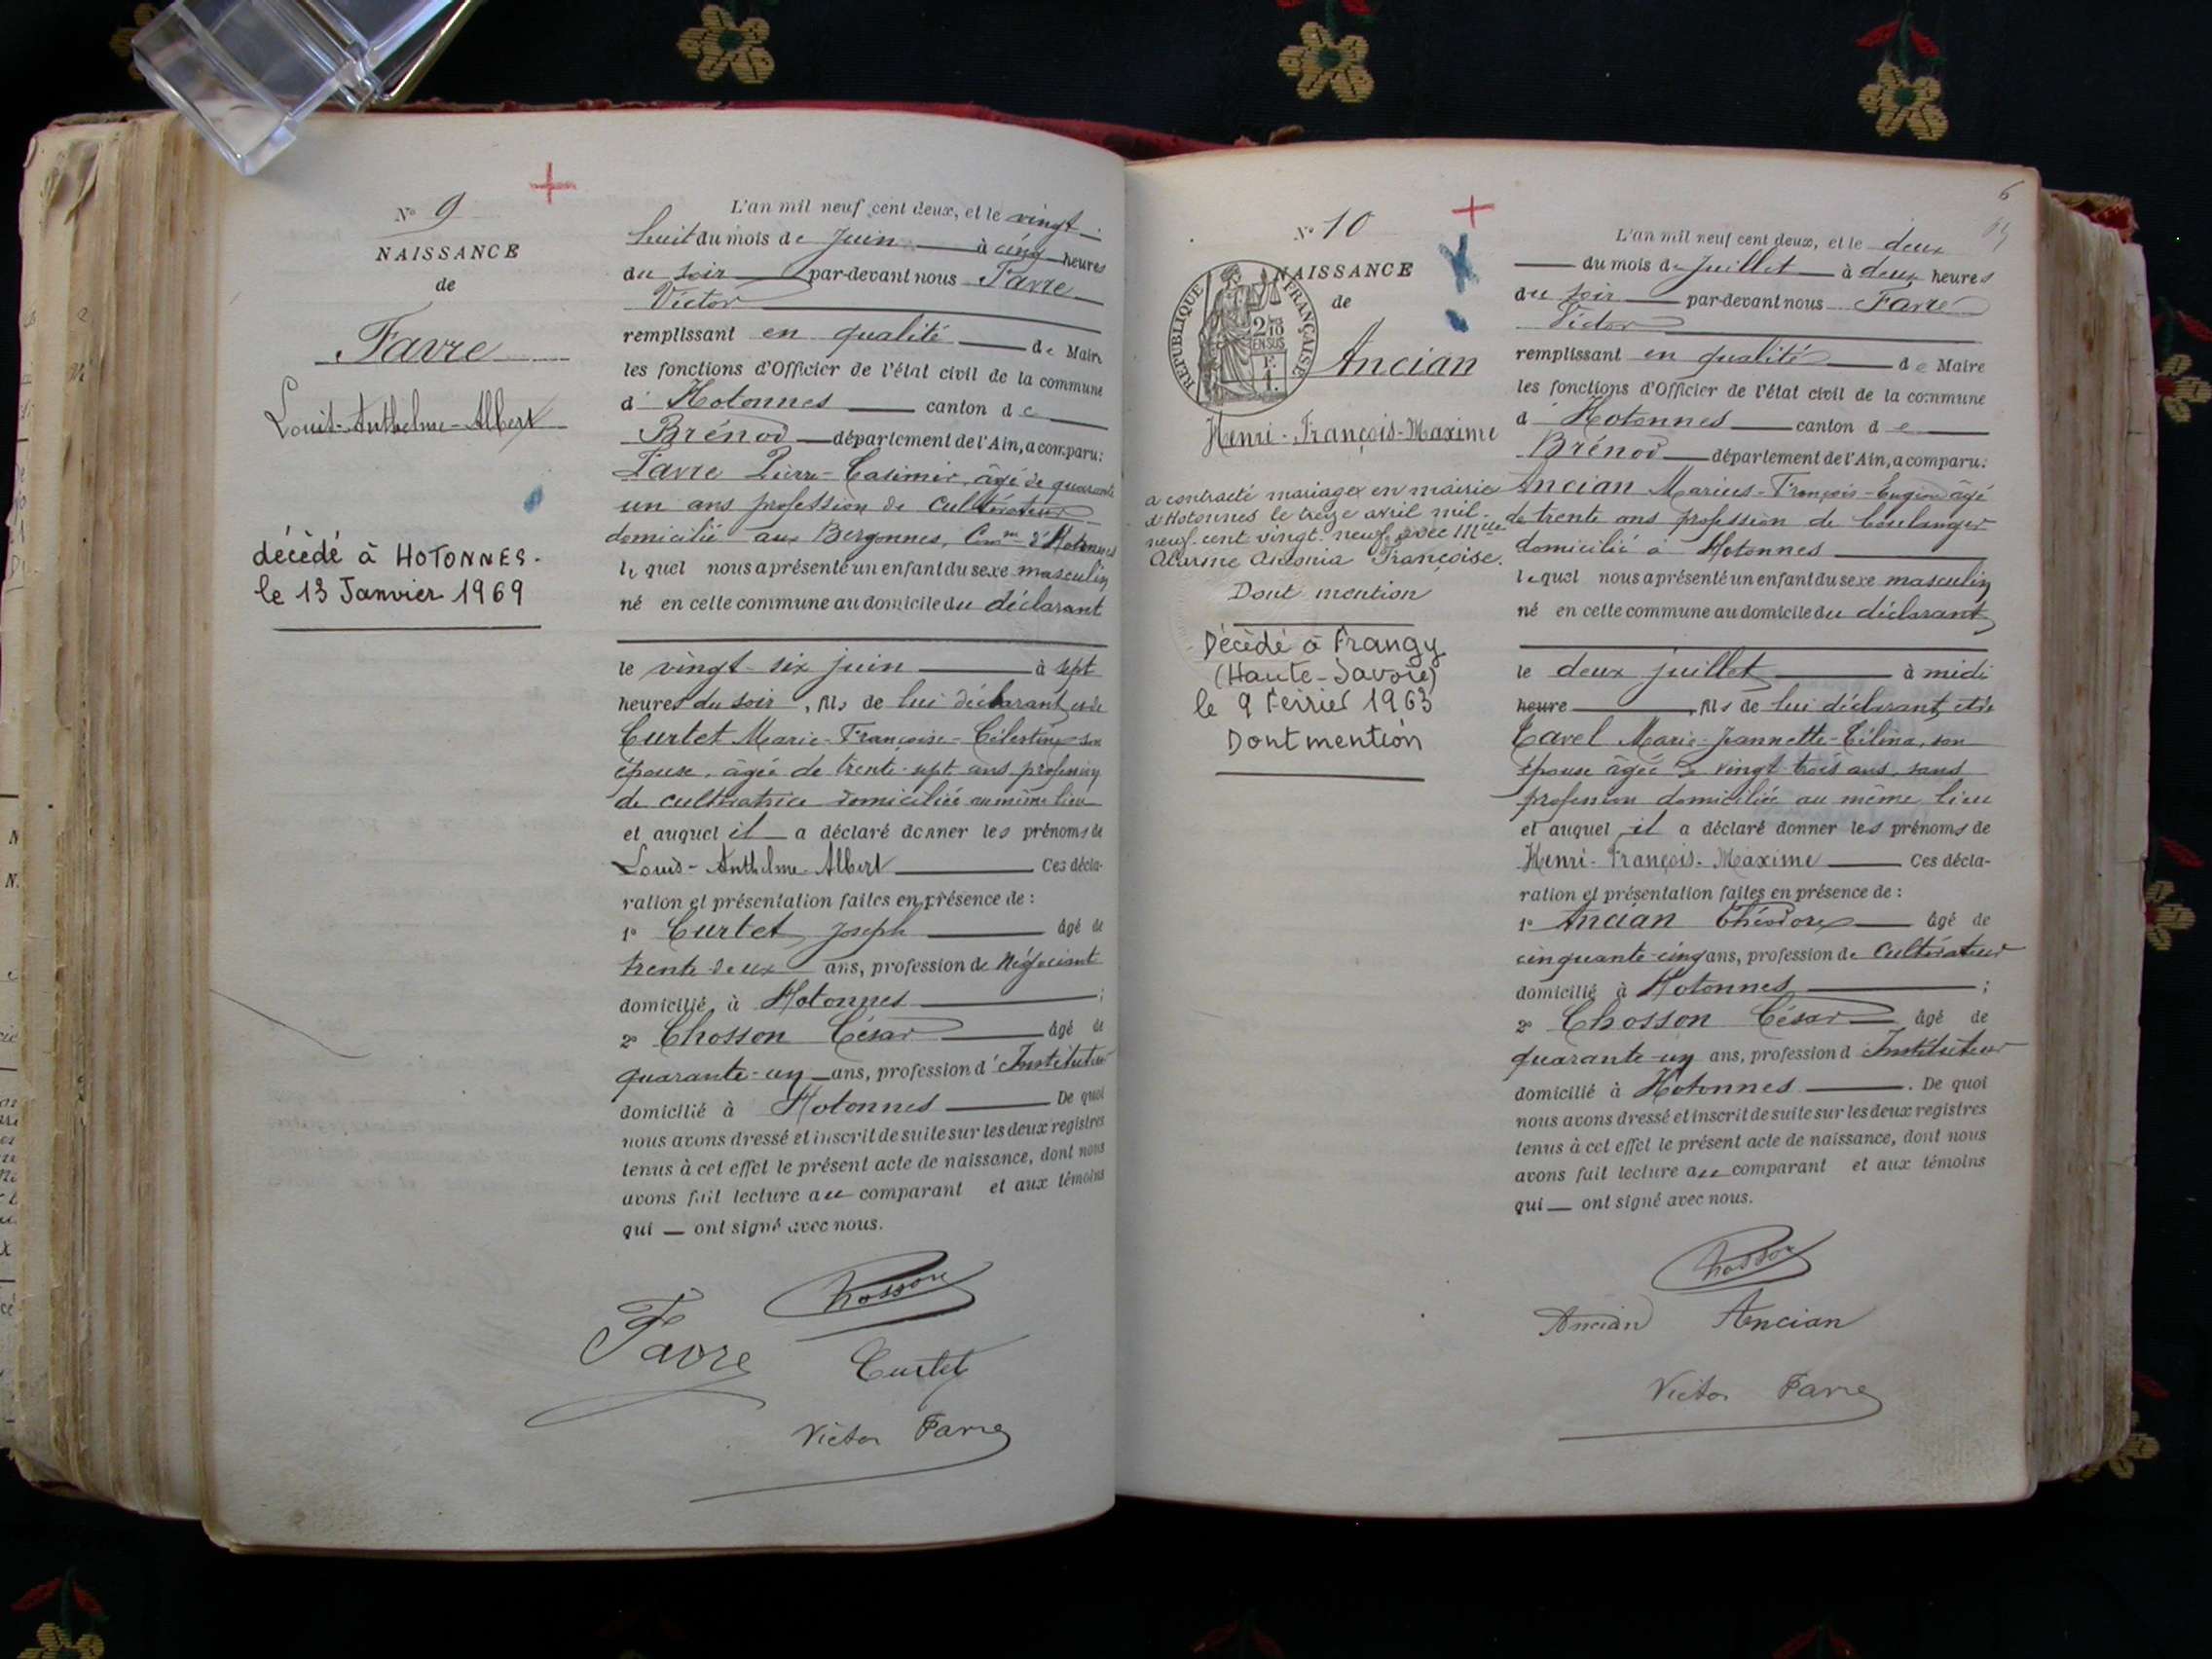 N° 9
NAISSANCE
de
Favre
Louis-Anthelme-Albert
décédé à HOTONNES.
le 13 Janvier 1969
L'an mil neuf cent deux, et le vingt-
huit du mois de Juin à cinq heures
du soir par-devant nous Favre
Victor
remplissant en qualité de Maire
les fonctions d'Officier de l'état civil de la commune
d' Hotonnes canton de
Brénod département de l'Ain, a comparu:
Favre Pierre-Casimir, âgé de quarante
un ans profession de Cultivateur
domicilié aux Bergonnes, Comne d'Hotonnes
lequel nous a présenté un enfant du sexe masculin
né en cette commune au domicile du déclarant
le vingt-six juin à sept
heures du soir, fils de lui déclarant et de
Curtet Marie-Françoise-Célestine son
épouse, âgée de trente-sept ans profession
de cultivatrice domiciliée au même lieu
et auquel il a déclaré donner les prénoms de
Louis-Anthelme-Albert Ces décla-
ration et présentation faites en présence de :
1° Curtet Joseph âgé de
trente-deux ans, profession de Négociant
domicilié à Hotonnes ;
2° Chosson César âgé de
quarante-un ans, profession d'Instituteur
domicilié à Hotonnes De quoi
nous avons dressé et inscrit de suite sur les deux registres
tenus à cet effet le présent acte de naissance, dont nous
avons fait lecture au comparant et aux témoins
qui ont signé avec nous.
Chosson
Favre
Curtet
Victor Favre
6
N° 10
NAISSANCE
de
RÉPUBLIQUE FRANÇAISE
2/10
EN SUS
F.
1.
Ancian
Henri-François-Maxime
a contracté mariage en mairie
d'Hotonnes le treize avril mil-
neuf cent vingt-neuf avec Melle
Antonia Françoise.
Dont mention
Décédé à Frangy
(Haute-Savoie)
le 9 Février 1963
Dont mention
L'an mil neuf cent deux, et le deux
du mois de Juillet à deux heures
du soir par-devant nous Favre
Victor
remplissant en qualité de Maire
les fonctions d'Officier de l'état civil de la commune
d' Hotonnes canton de
Brénod département de l'Ain, a comparu:
Ancian Marius-François-Eugène âgé
de trente ans profession de boulanger
domicilié à Hotonnes
lequel nous a présenté un enfant du sexe masculin
né en cette commune au domicile du déclarant
le deux juillet à midi
heure, fils de lui déclarant et de
Cavel Marie-Jeannette-Célina, son
épouse âgée de vingt-trois ans, sans
profession domiciliée au même lieu
et auquel il a déclaré donner les prénoms de
Henri-François-Maxime Ces décla-
ration et présentation faites en présence de :
1° Ancian Théodore âgé de
cinquante-cinq ans, profession de Cultivateur
domicilié à Hotonnes ;
2° Chosson César âgé de
quarante-un ans, profession d'Instituteur
domicilié à Hotonnes. De quoi
nous avons dressé et inscrit de suite sur les deux registres
tenus à cet effet le présent acte de naissance, dont nous
avons fait lecture au comparant et aux témoins
qui ont signé avec nous.
Chosson
Ancian Ancian
Victor Favre